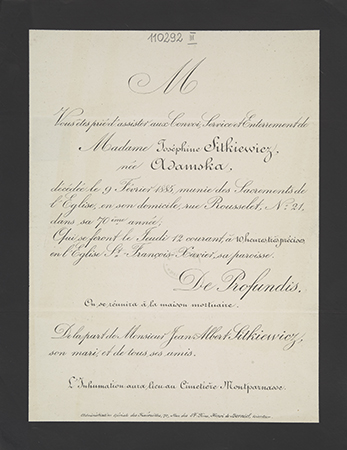 110292 III
M
Vous êtes prié d'assister aux Convoi, Service et Enterrement de
Madame Joséphine Sitkiewicz,
née Adamska,
décédée le 9 Février 1885, munie des Sacrements de
l'Eglise, en son domicile, rue Rousselet, N° 21,
dans sa 70ième année.
Qui se feront le Jeudi 12 courant, à 10 heures très précises
en l'Eglise St François-Xavier, sa paroisse.
De Profundis,
On se réunira à la maison mortuaire.
De la part de Monsieur Jean Albert Sitkiewicz,
son mari, et de tous ses amis.
L'Inhumation aura lieu au Cimetière Montparnasse.